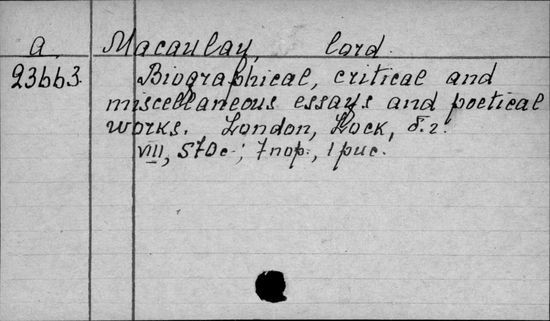 A. Macaulay, lord.
23663. Biographical, critical and
miscellaneous essays and poetical
works. London, Lock, б. г.
VIII, 570 с.; 7 пор., 1 рис.